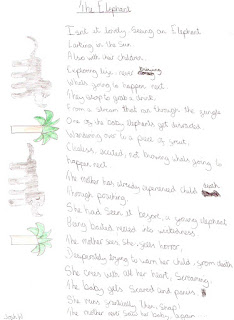 The Elephant
Isn't it lovely seeing an Elephant
Lurking in the Sun.
Also with their children.
Exploring luxe, never knowing
Whats going to happen next.
They stop to grab a drink.
From a stream that ran through the jungle
One of the baby elephants got
Wandering over to a piece of fruit.
Clueless, excited, not knowing whats going to
happen next.
The mother has already experienced child death
Through poaching.
She had seen it before, a young elephant
Being baited reeled into
The mother seen, she yells horror,
Desperately trying to warn her child, from death
She cries with all her heart, screaming.
The baby gets Scared and panics
She runs gradually then, snap!
The mother never sees her baby, again...